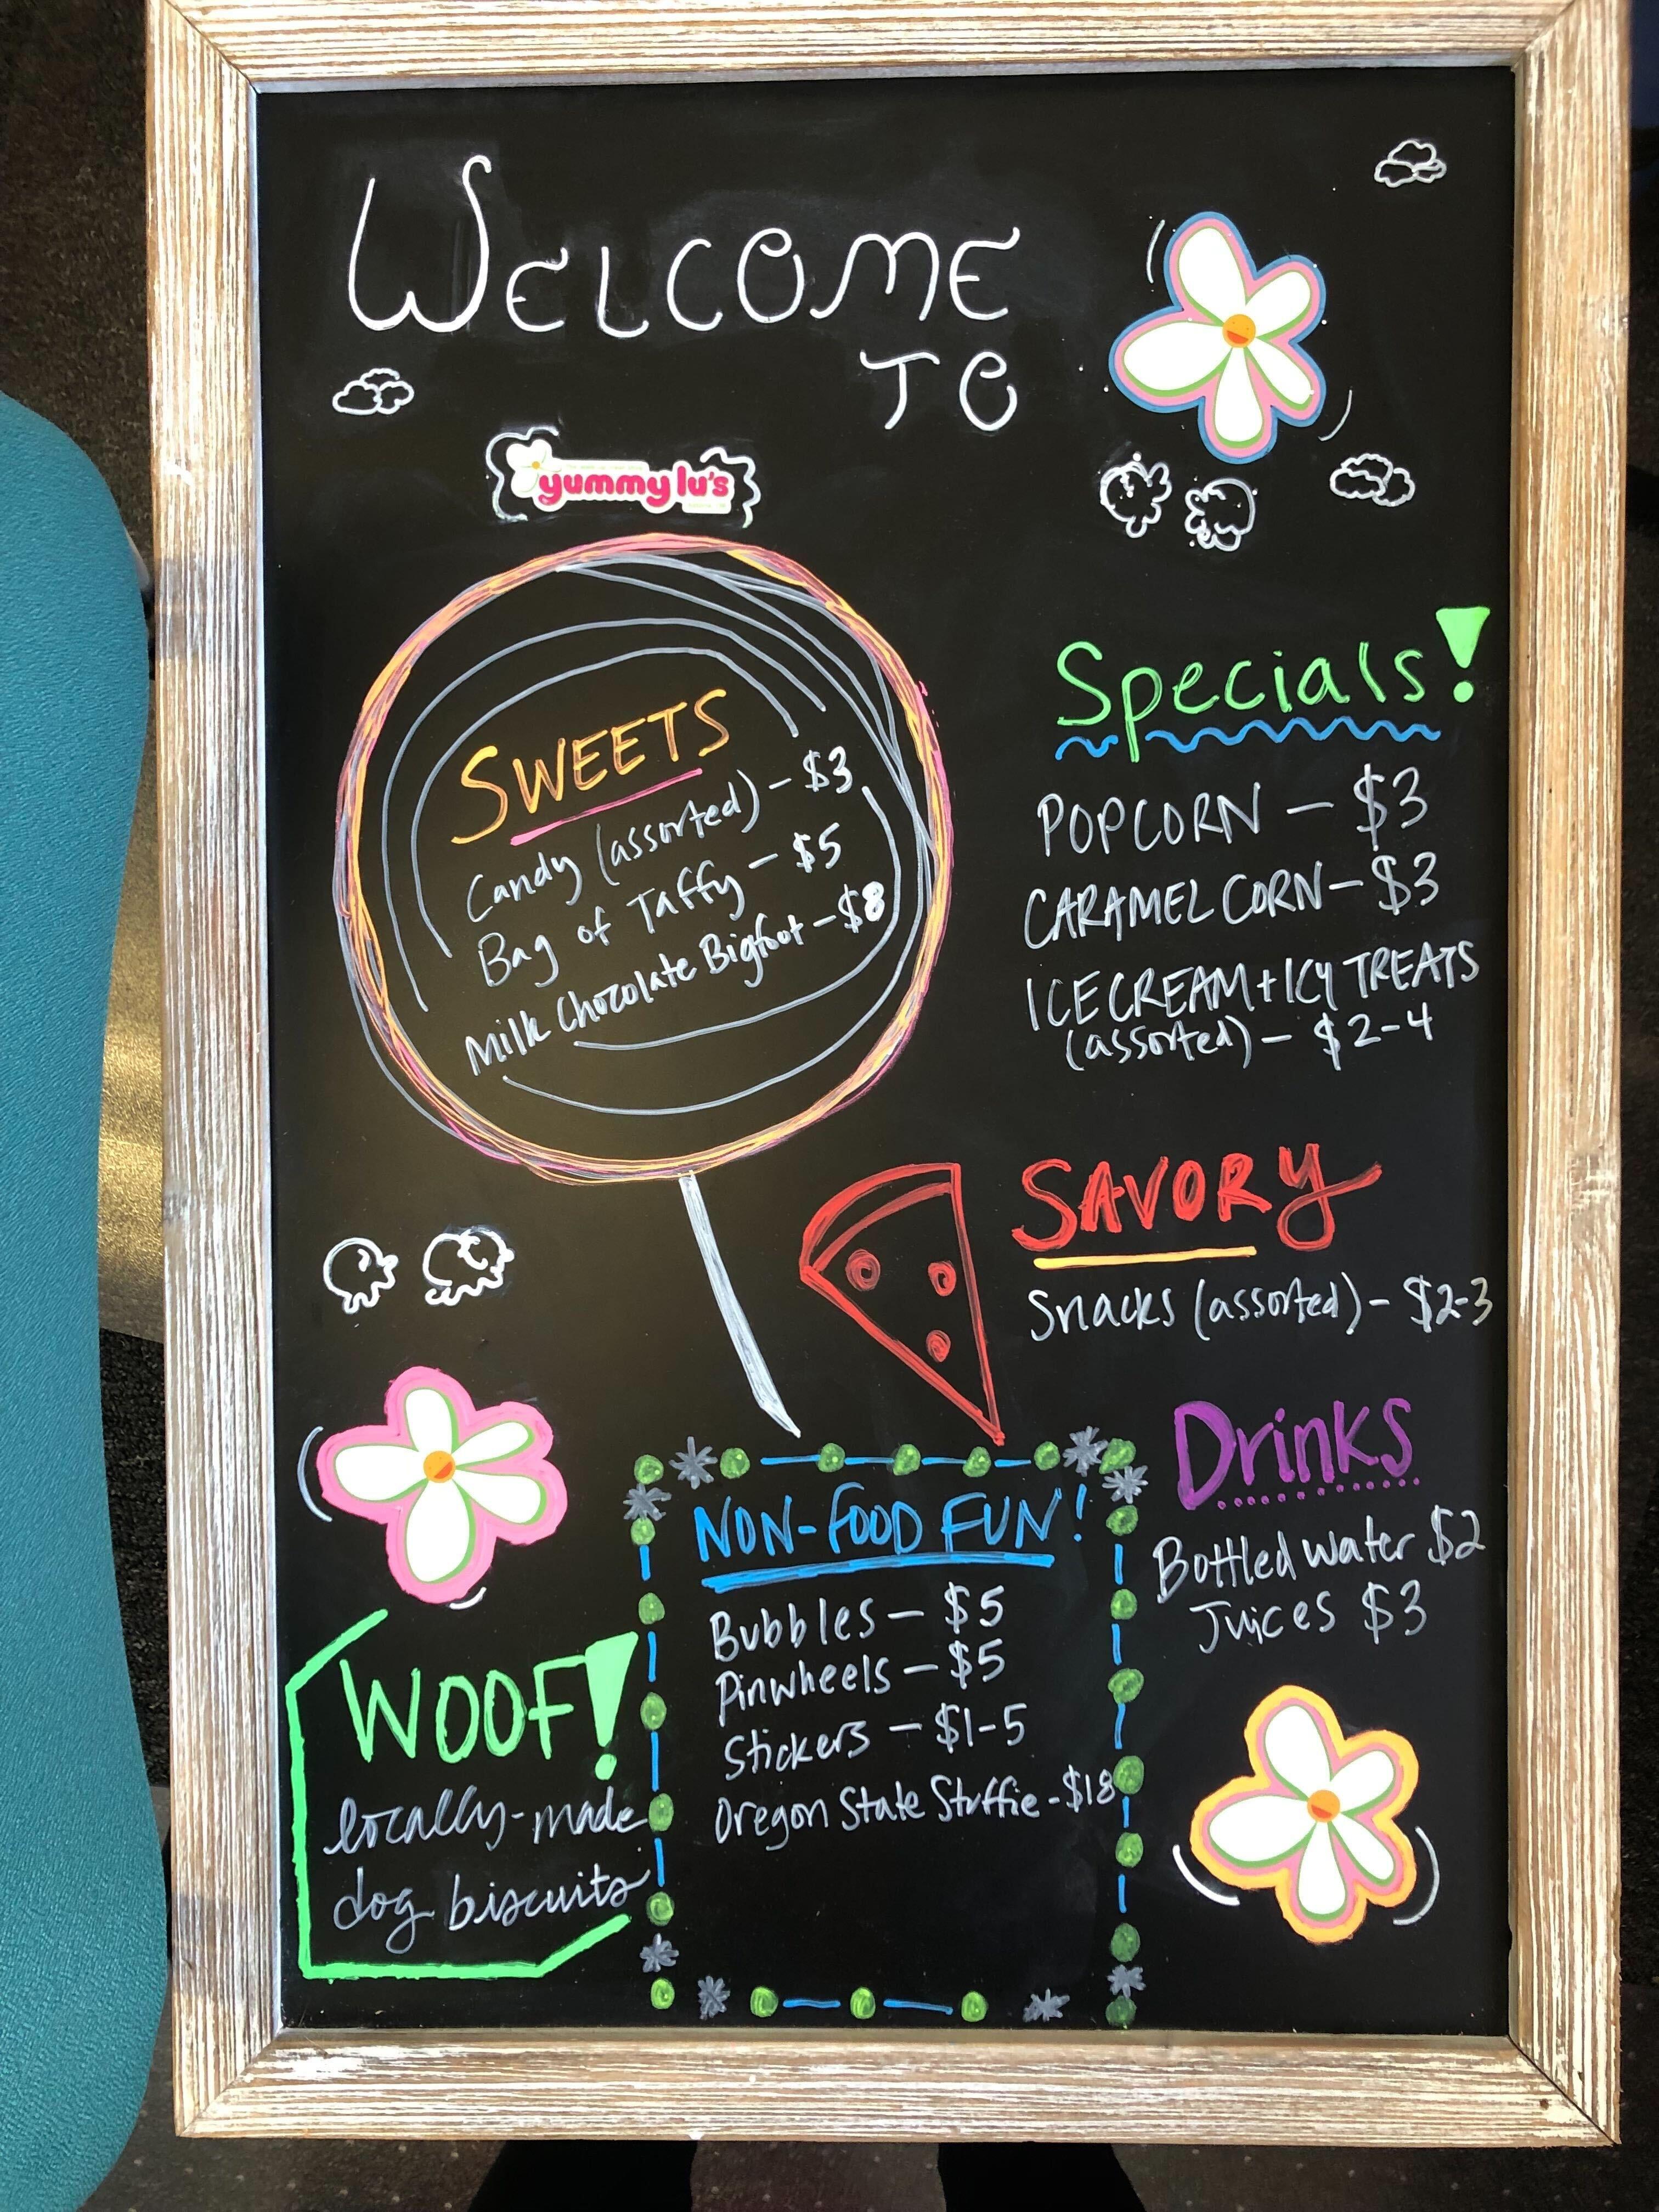 WELCOME
TO
yummy lu's
SWEETS
Candy (assorted) - $3
Bag of Taffy - $5
Milk Chocolate Bigfoot - $8
Specials!
POPCORN - $3
CARAMEL CORN - $3
ICE CREAM + ICY TREATS
(assorted) - $2-4
SAVORY
Snacks (assorted) - $2-3
Drinks
Bottled Water $2
Juices $3
NON-FOOD FUN!
Bubbles - $5
Pinwheels - $5
Stickers - $1-5
Oregon State Stuffie - $18
WOOF!
locally-made
dog biscuits